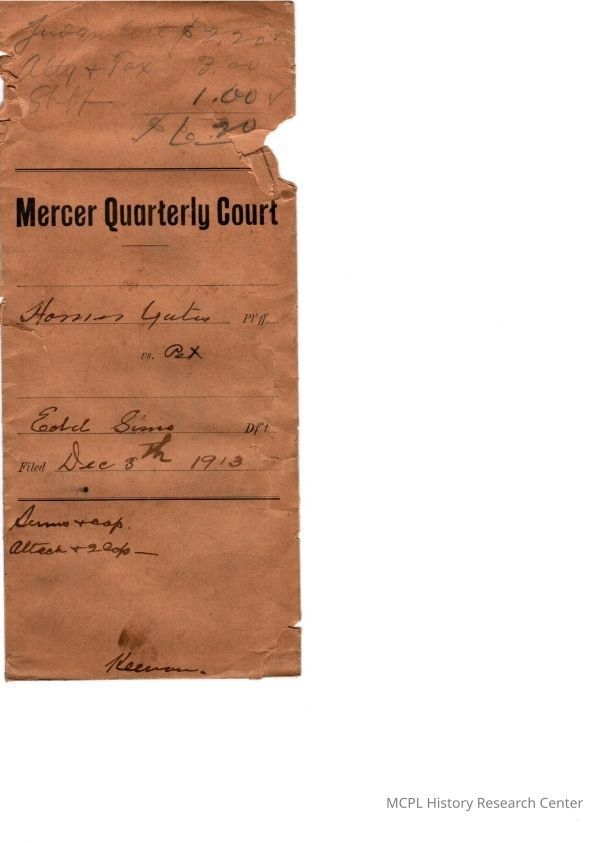 Judges Cost $ 2.20 ✓
Atty + Tax 3.00
Shff 1.00 ✓
$ 6.20
Mercer Quarterly Court
Homer Yates Pl'ff
vs. Pet
Edd Sims Df't
Filed Dec 8th 1913
Sums + cop.
Attach + 2 cop
Keenon.
MCPL History Research Center